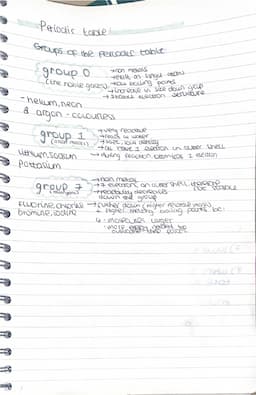 Periodic table
Groups of the periodic table
group 0 → non metals
(the noble gases) → exist as single atoms
→ low boiling points
→ increase in size down group
→ stable electron structure
- helium, neon
& argon - colourless
group 1 → very reactive
(alkali metals) → reacts w water
→ soft, low density
→ all have 1 electron in outer shell
lithium, sodium → during reaction 1 electron
Potassium
group 7 → non metals
→ 7 electrons on outer shell
→ reactivity decreases
down the group
fluorine, chlorine → further down (higher relative mass)
bromine, iodine higher melting boiling points bc
molecules larger
more energy needed to
overcome forces